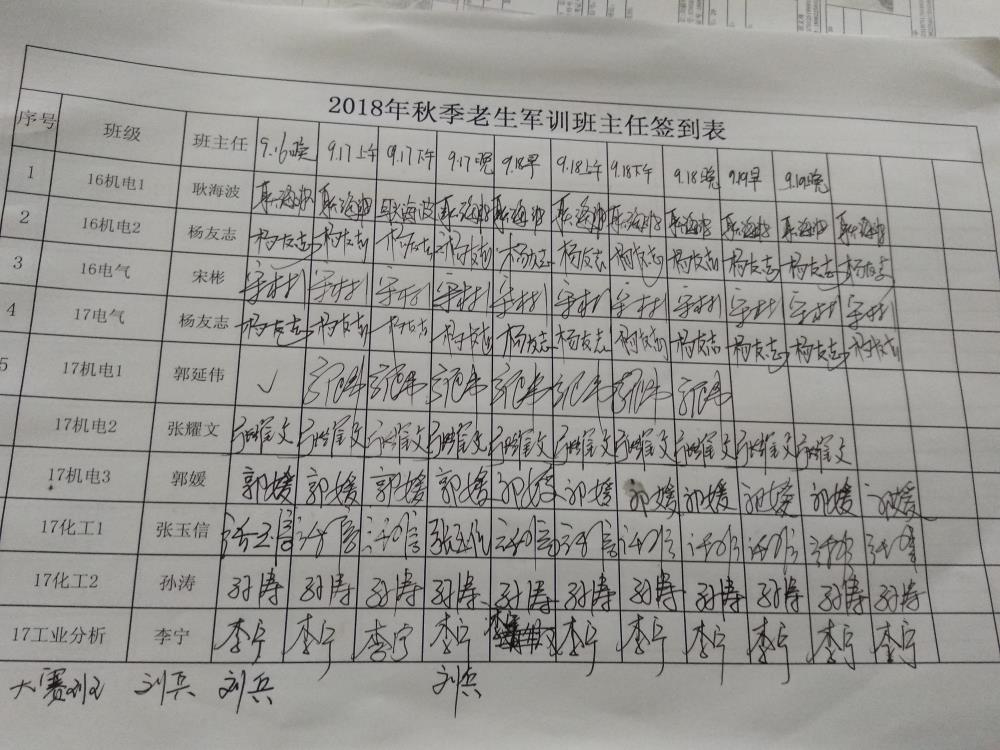 2018年秋季老生军训班主任签到表
序号 班级 班主任 9.16晚 9.17上午 9.17下午 9.17晚 9.18早 9.18上午 9.18下午 9.18晚 9.19早 9.19晚
1 16机电1 耿海波 耿海波 耿海波 耿海波 耿海波 耿海波 耿海波 耿海波 耿海波 耿海波 耿海波 耿海波
2 16机电2 杨友志 杨友志 杨友志 杨友志 杨友志 杨友志 杨友志 杨友志 杨友志 杨友志 杨友志 杨友志
3 16电气 宋彬 宋彬 宋彬 宋彬 宋彬 宋彬 宋彬 宋彬 宋彬 宋彬 宋彬 宋彬
4 17电气 杨友志 杨友志 杨友志 杨友志 杨友志 杨友志 杨友志 杨友志 杨友志 杨友志 杨友志 杨友志
5 17机电1 郭延伟 ✓
17机电2 张耀文 张耀文 张耀文 张耀文 张耀文 张耀文 张耀文 张耀文 张耀文 张耀文 张耀文
17机电3 郭媛 郭媛 郭媛 郭媛 郭媛 郭媛 郭媛 郭媛 郭媛 郭媛 郭媛 郭媛
17化工1 张玉信 张玉信 张玉信 张玉信 张玉信 张玉信 张玉信 张玉信 张玉信 张玉信 张玉信 张玉信
17化工2 孙涛 孙涛 孙涛 孙涛 孙涛 孙涛 孙涛 孙涛 孙涛 孙涛 孙涛 孙涛
17工业分析 李宁 李宁 李宁 李宁 李宁 李宁 李宁 李宁 李宁 李宁 李宁 李宁
大赛班 刘兵 刘兵 刘兵